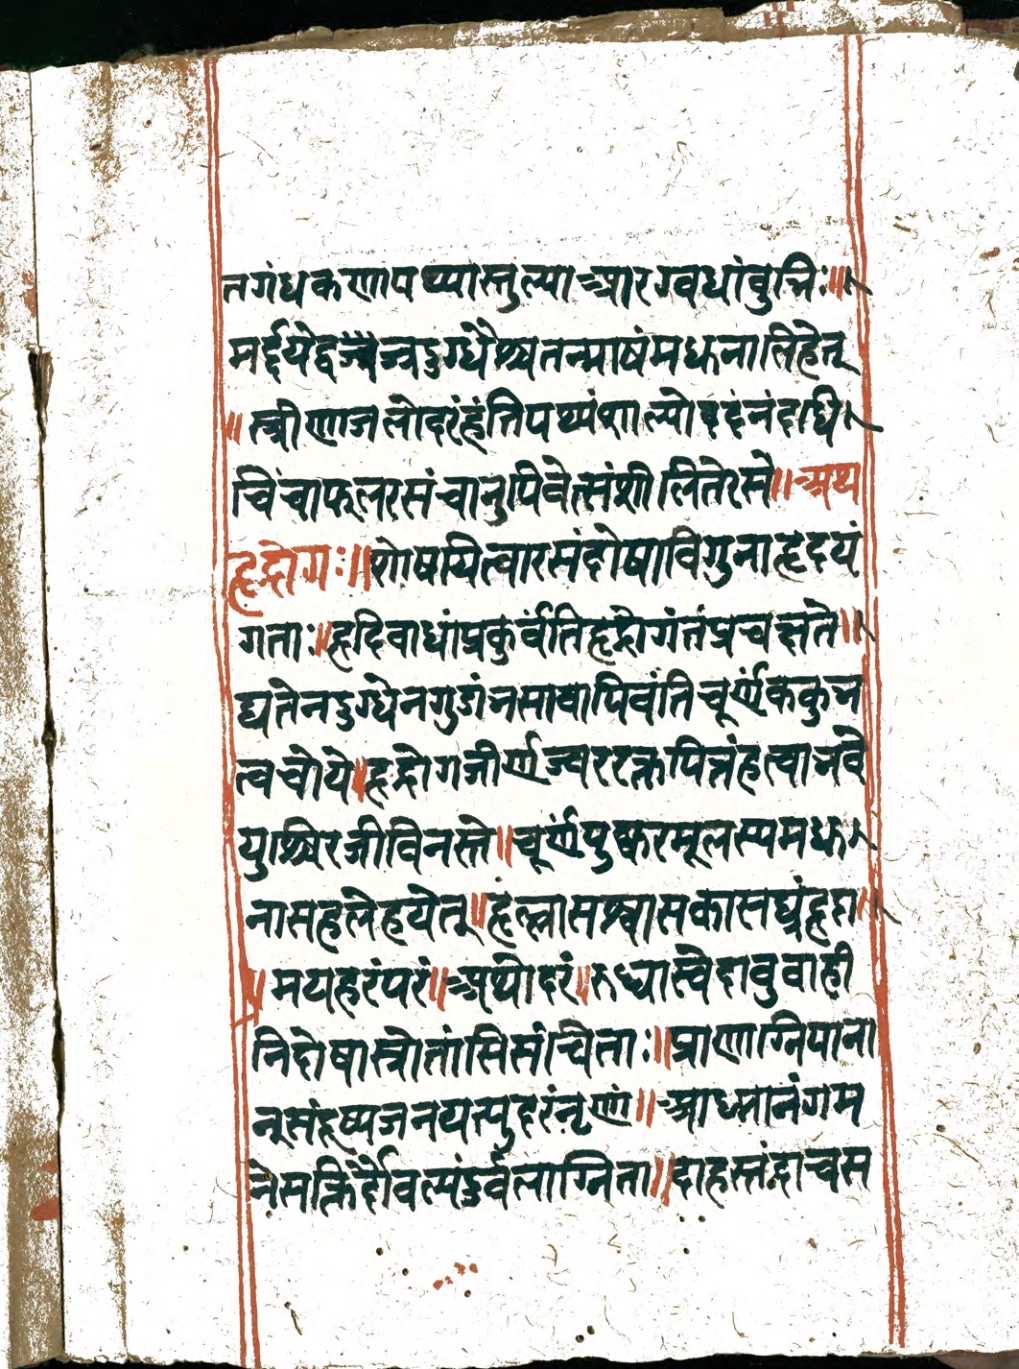 तगंधकणापथ्यास्तुल्याआरग्वधांबुभिः॥
मर्द्दयेद्वज्रवज्वदुग्धैश्चतन्माषंमधुनालिहेत्
॥स्त्रीणाजलोदरंहंतिपथ्यंशाल्योदनंदधि।
चिंचाफलरसंचानुपिवेत्संशीलितेरसे॥अथ
हृद्रोगः॥शोषयित्वारसंदोषाविगुनाहृदयं
गताः॥हृदिवाधांप्रकुर्वंतिहृद्रोगंतंप्रचक्षते॥
घृतेनदुग्धेनगुडांभसावापिवंतिचूर्णंककुभ
त्वचोये॥हृद्रोगजीर्णज्वररक्तपित्तंहत्वाभवे
युश्चिरजीविनस्ते॥चूर्णंपुष्करमूलस्यमधु।
नासहलेहयेत्॥हृल्लासश्वासकासघ्नंहृदा॥
॥मयहरंपरं॥अथोदरं॥रुध्वास्वेदावुवाही
निदोषास्त्रोतांसिसंचिताः॥प्राणाग्निपाना
न्संदूष्यजनयत्युदरंनृणां॥आध्मानंगम
नेसक्तिर्दौर्वल्यंदुर्वलाग्निता॥दाहस्तंद्राचस